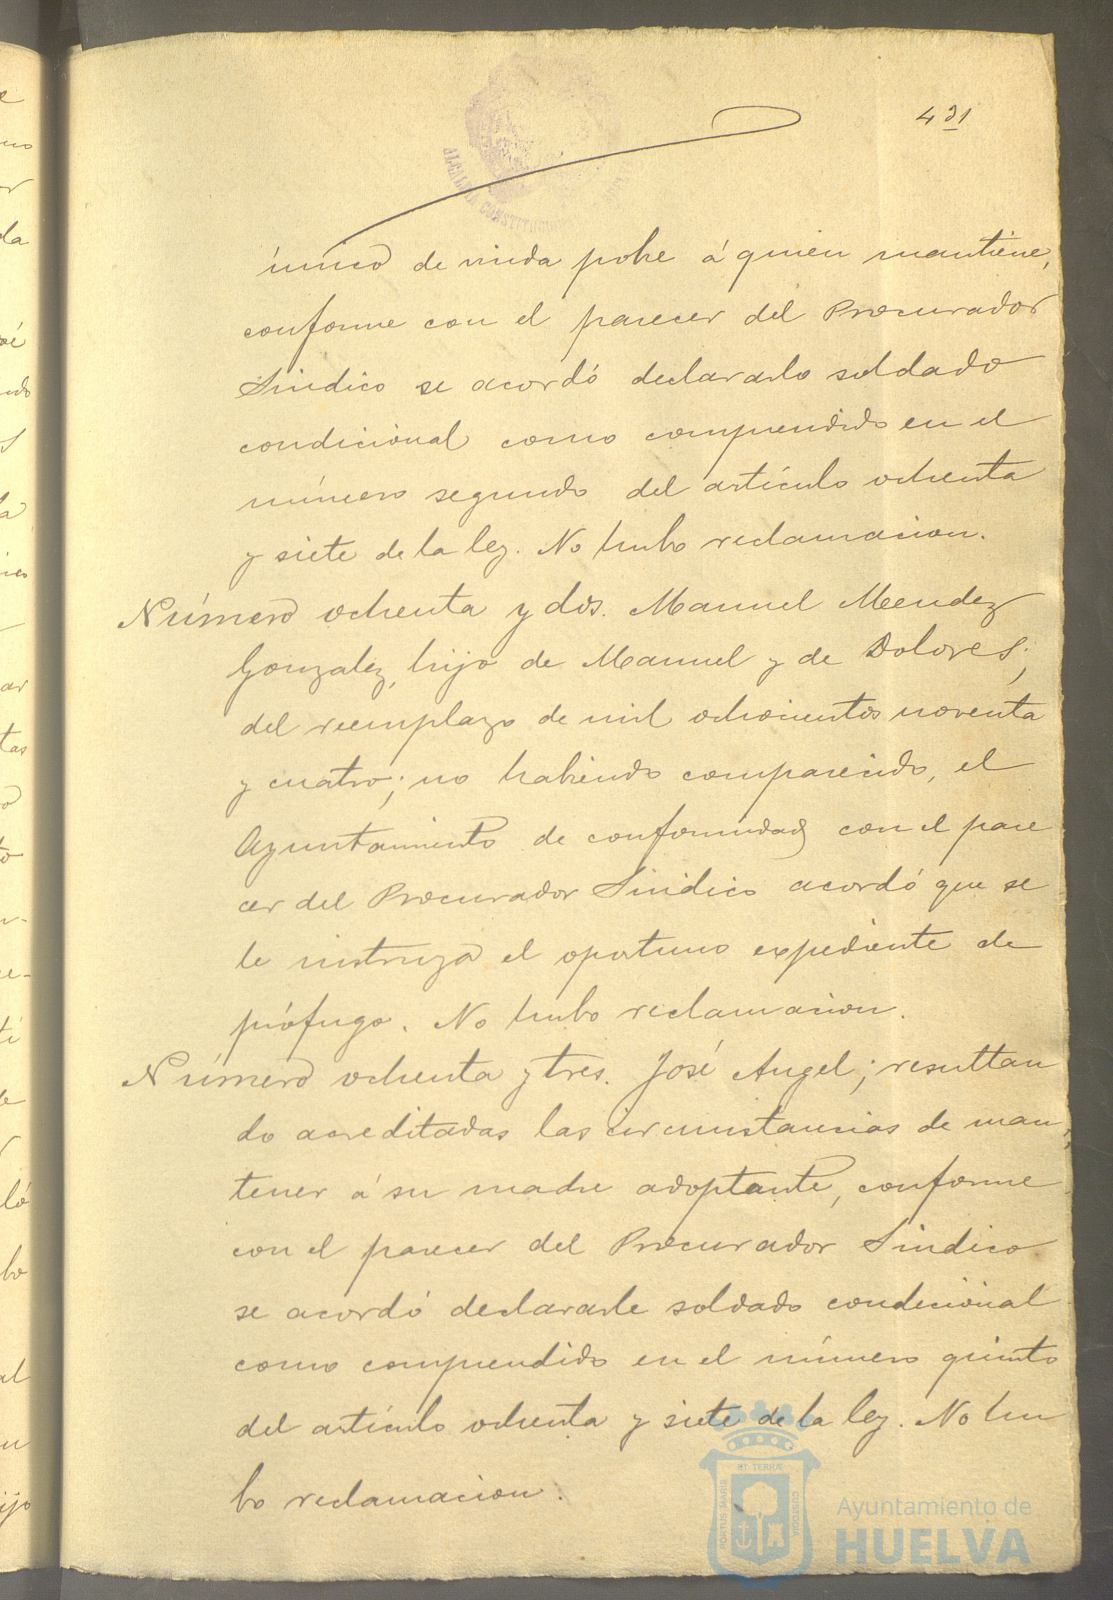 431
ALCALDIA CONSTITUCIONAL
único de viuda pobre á quien mantiene,
conforme con el parecer del Procurador
Sindico se acordó declararlo soldado
condicional como comprendido en el
número segundo del artículo ochenta
y siete de la ley. No hubo reclamacion.
Número ochenta y dos. Manuel Mendez
Gonzalez, hijo de Manuel y de Dolores;
del reemplazo de mil ochocientos noventa
y cuatro; no habiendo comparecido, el
Ayuntamiento de conformidad con el pare
cer del Procurador Sindico acordó que se
le instruya el oportuno expediente de
prófugo. No hubo reclamacion.
Número ochenta y tres. José Angel; resultan
do acreditadas las circunstancias de man
tener á su madre adoptante, conforme
con el parecer del Procurador Sindico
se acordó declararle soldado condicional
como comprendido en el número quinto
del artículo ochenta y siete de la ley. No hu
bo reclamacion.
PORTUS MARIS ET TERRÆ CUSTODIA
Ayuntamiento de
HUELVA